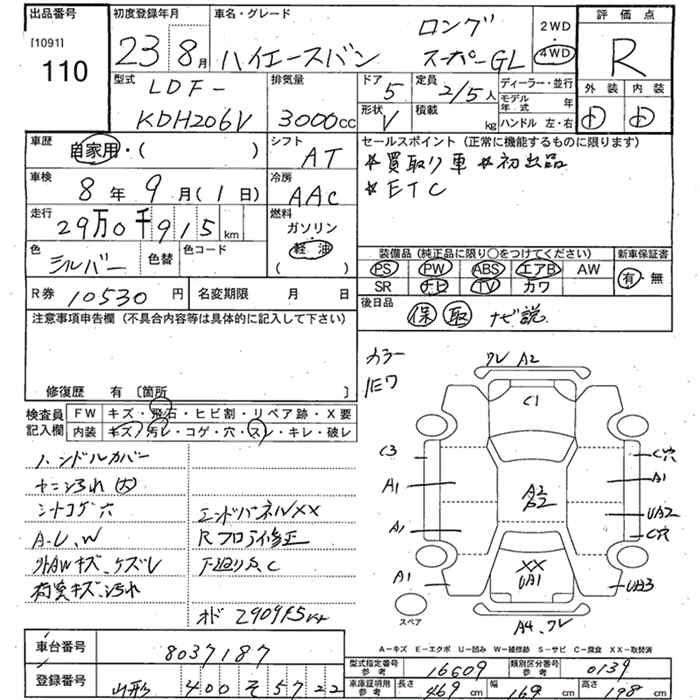 出品番号 初度登録年月 車名・グレード ロング 2WD 評価点
[1091] 23 8月 ハイエースバン スーパーGL ・ 4WD R
110 外装 内装
型式 LDF- 排気量 ドア 5 定員 2/5人 ディーラー・並行 D D
モデル年式 年
KDH206V 3000cc 形状 V 積載 kg ハンドル 左・右
車歴 自家用・( ) シフト AT セールスポイント (正常に機能するものに限ります)
*買取り車 *初出品
車検 8年 9月 (1日) 冷房 AAC *ETC
走行 29万0千915km 燃料 ガソリン
軽油
( )
色 シルバー 色替 色コード
装備品 (純正品に限り○をつけてください) 新車保証書
PS PW ABS エアB AW 有・無
SR ナビ TV カワ
R券 10530円 名変期限 月 日 後日品 保 取 ナビ説
注意事項申告欄 (不具合内容等は具体的に記入して下さい)
修復歴 有 〔箇所 〕
検査員 FW キズ・飛石・ヒビ割・リペア跡・X要
記入欄 内装 キズ・汚レ・コゲ・穴・スレ・キレ・破レ
ハンドルカバー
シートコゲ穴 エンドパネルXX
A.U.W Rフロアイ修正
外AWキズ、ケズレ 下廻りS、C
荷室キズ、汚れ
カラー
1E7
ワレ A2
C1
C3 C穴
A1 A1
A2
B2
UA2
A1 C穴
XX
UA1
A1 UB3
スペア
A4、ワレ
A-キズ E-エクボ U-凹み W-補修跡 S-サビ C-腐食 XX-取替済
車台番号 8037187
型式指定番号 参考 16609 類別区分番号 参考 0139
登録番号 山形 400 そ 5722
車庫証明用 参考 長さ 469cm 幅 169cm 高さ 198cm